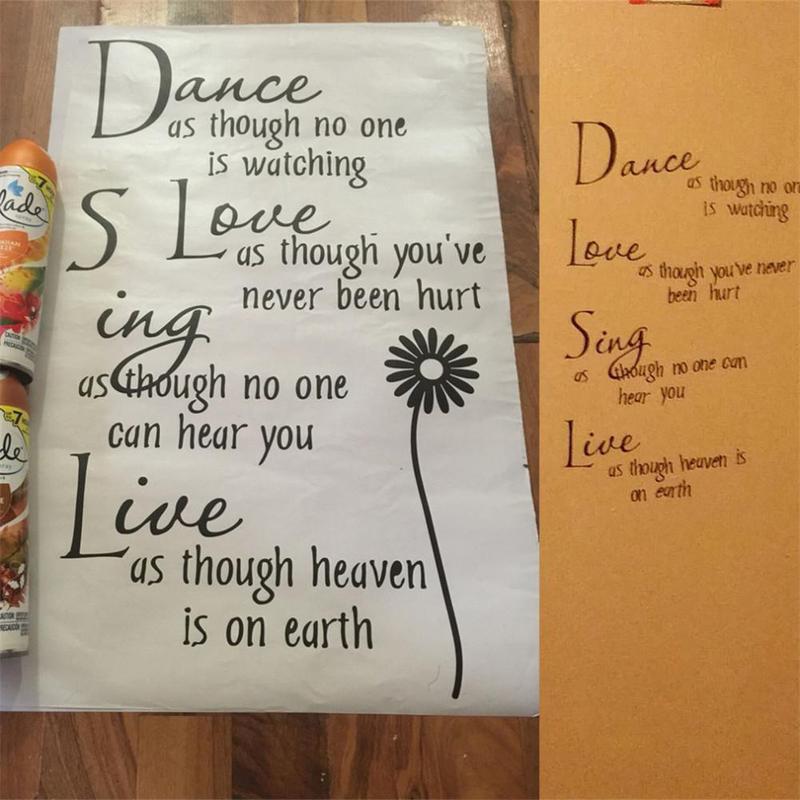 Dance
as though no one
is watching
S Love
as though you've
never been hurt
ing
as though no one
can hear you
Live
as though heaven
is on earth
lade
CAUTION
PRECAUCIÓN
de
CAUTION
PRECAUCIÓN
Dance
as though no on
is watching
Love
as though you've never
been hurt
Sing
as though no one can
hear you
Live
as though heaven is
on earth